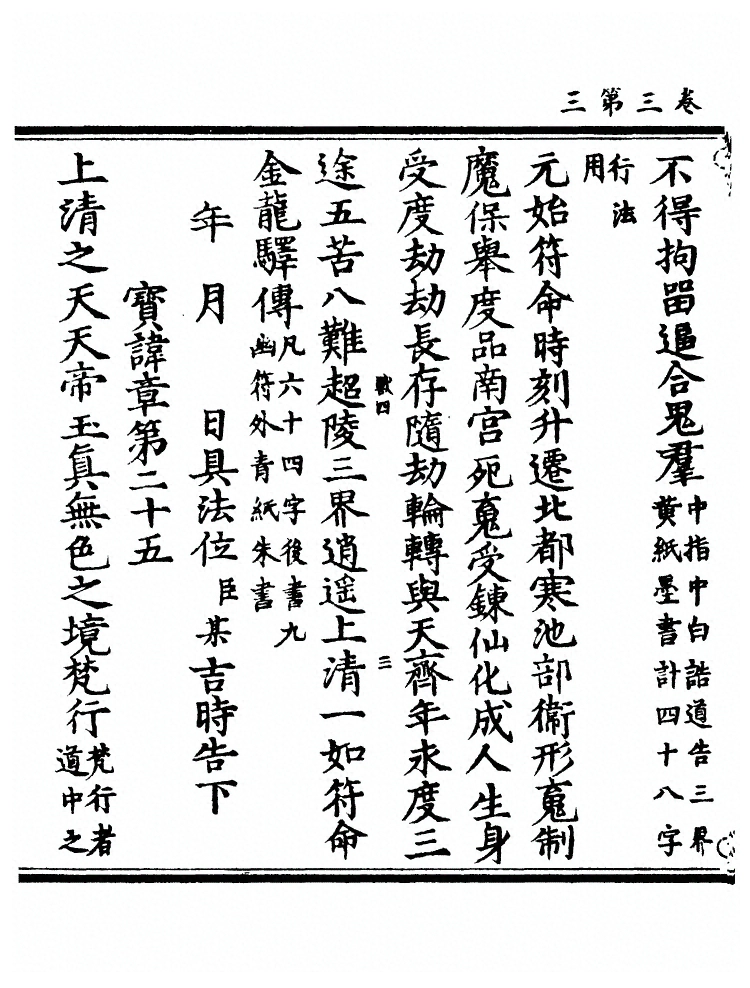 卷三第三
不得拘畱逼合鬼羣中指中白誥道告三界黃紙墨書計四十八字
行法用
元始符命時刻升遷北都寒池部衛形䰟制
魔保舉度品南宮死䰟受鍊仙化成人生身
受度劫劫長存隨劫輪轉與天齊年永度三
途五苦八難超陵三界逍遥上清一如符命
金龍驛傳凡六十四字後書九幽符外青紙朱書
年 月 日具法位臣某吉時告下
寶諱章第二十五
上清之天天帝玉眞無色之境梵行梵行者道中之
四
三